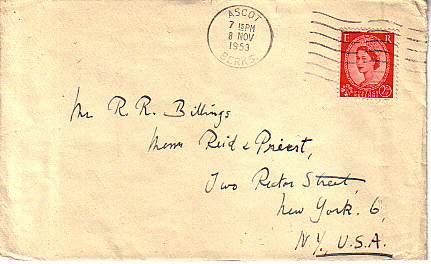 ASCOT
7 15 PM
8 NOV
1953
BERKS.
E R
2½
Mr R. R. Billings
Messrs Reid & Priest,
Two Rector Street,
New York. 6,
N.Y. U.S.A.